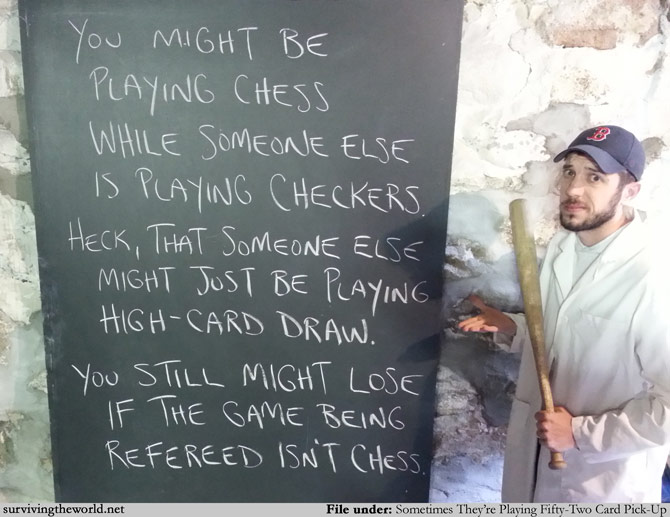 YOU MIGHT BE
PLAYING CHESS
WHILE SOMEONE ELSE
IS PLAYING CHECKERS.
HECK, THAT SOMEONE ELSE
MIGHT JUST BE PLAYING
HIGH-CARD DRAW.
YOU STILL MIGHT LOSE
IF THE GAME BEING
REFEREED ISN'T CHESS.
B
survivingtheworld.net
File under: Sometimes They're Playing Fifty-Two Card Pick-Up